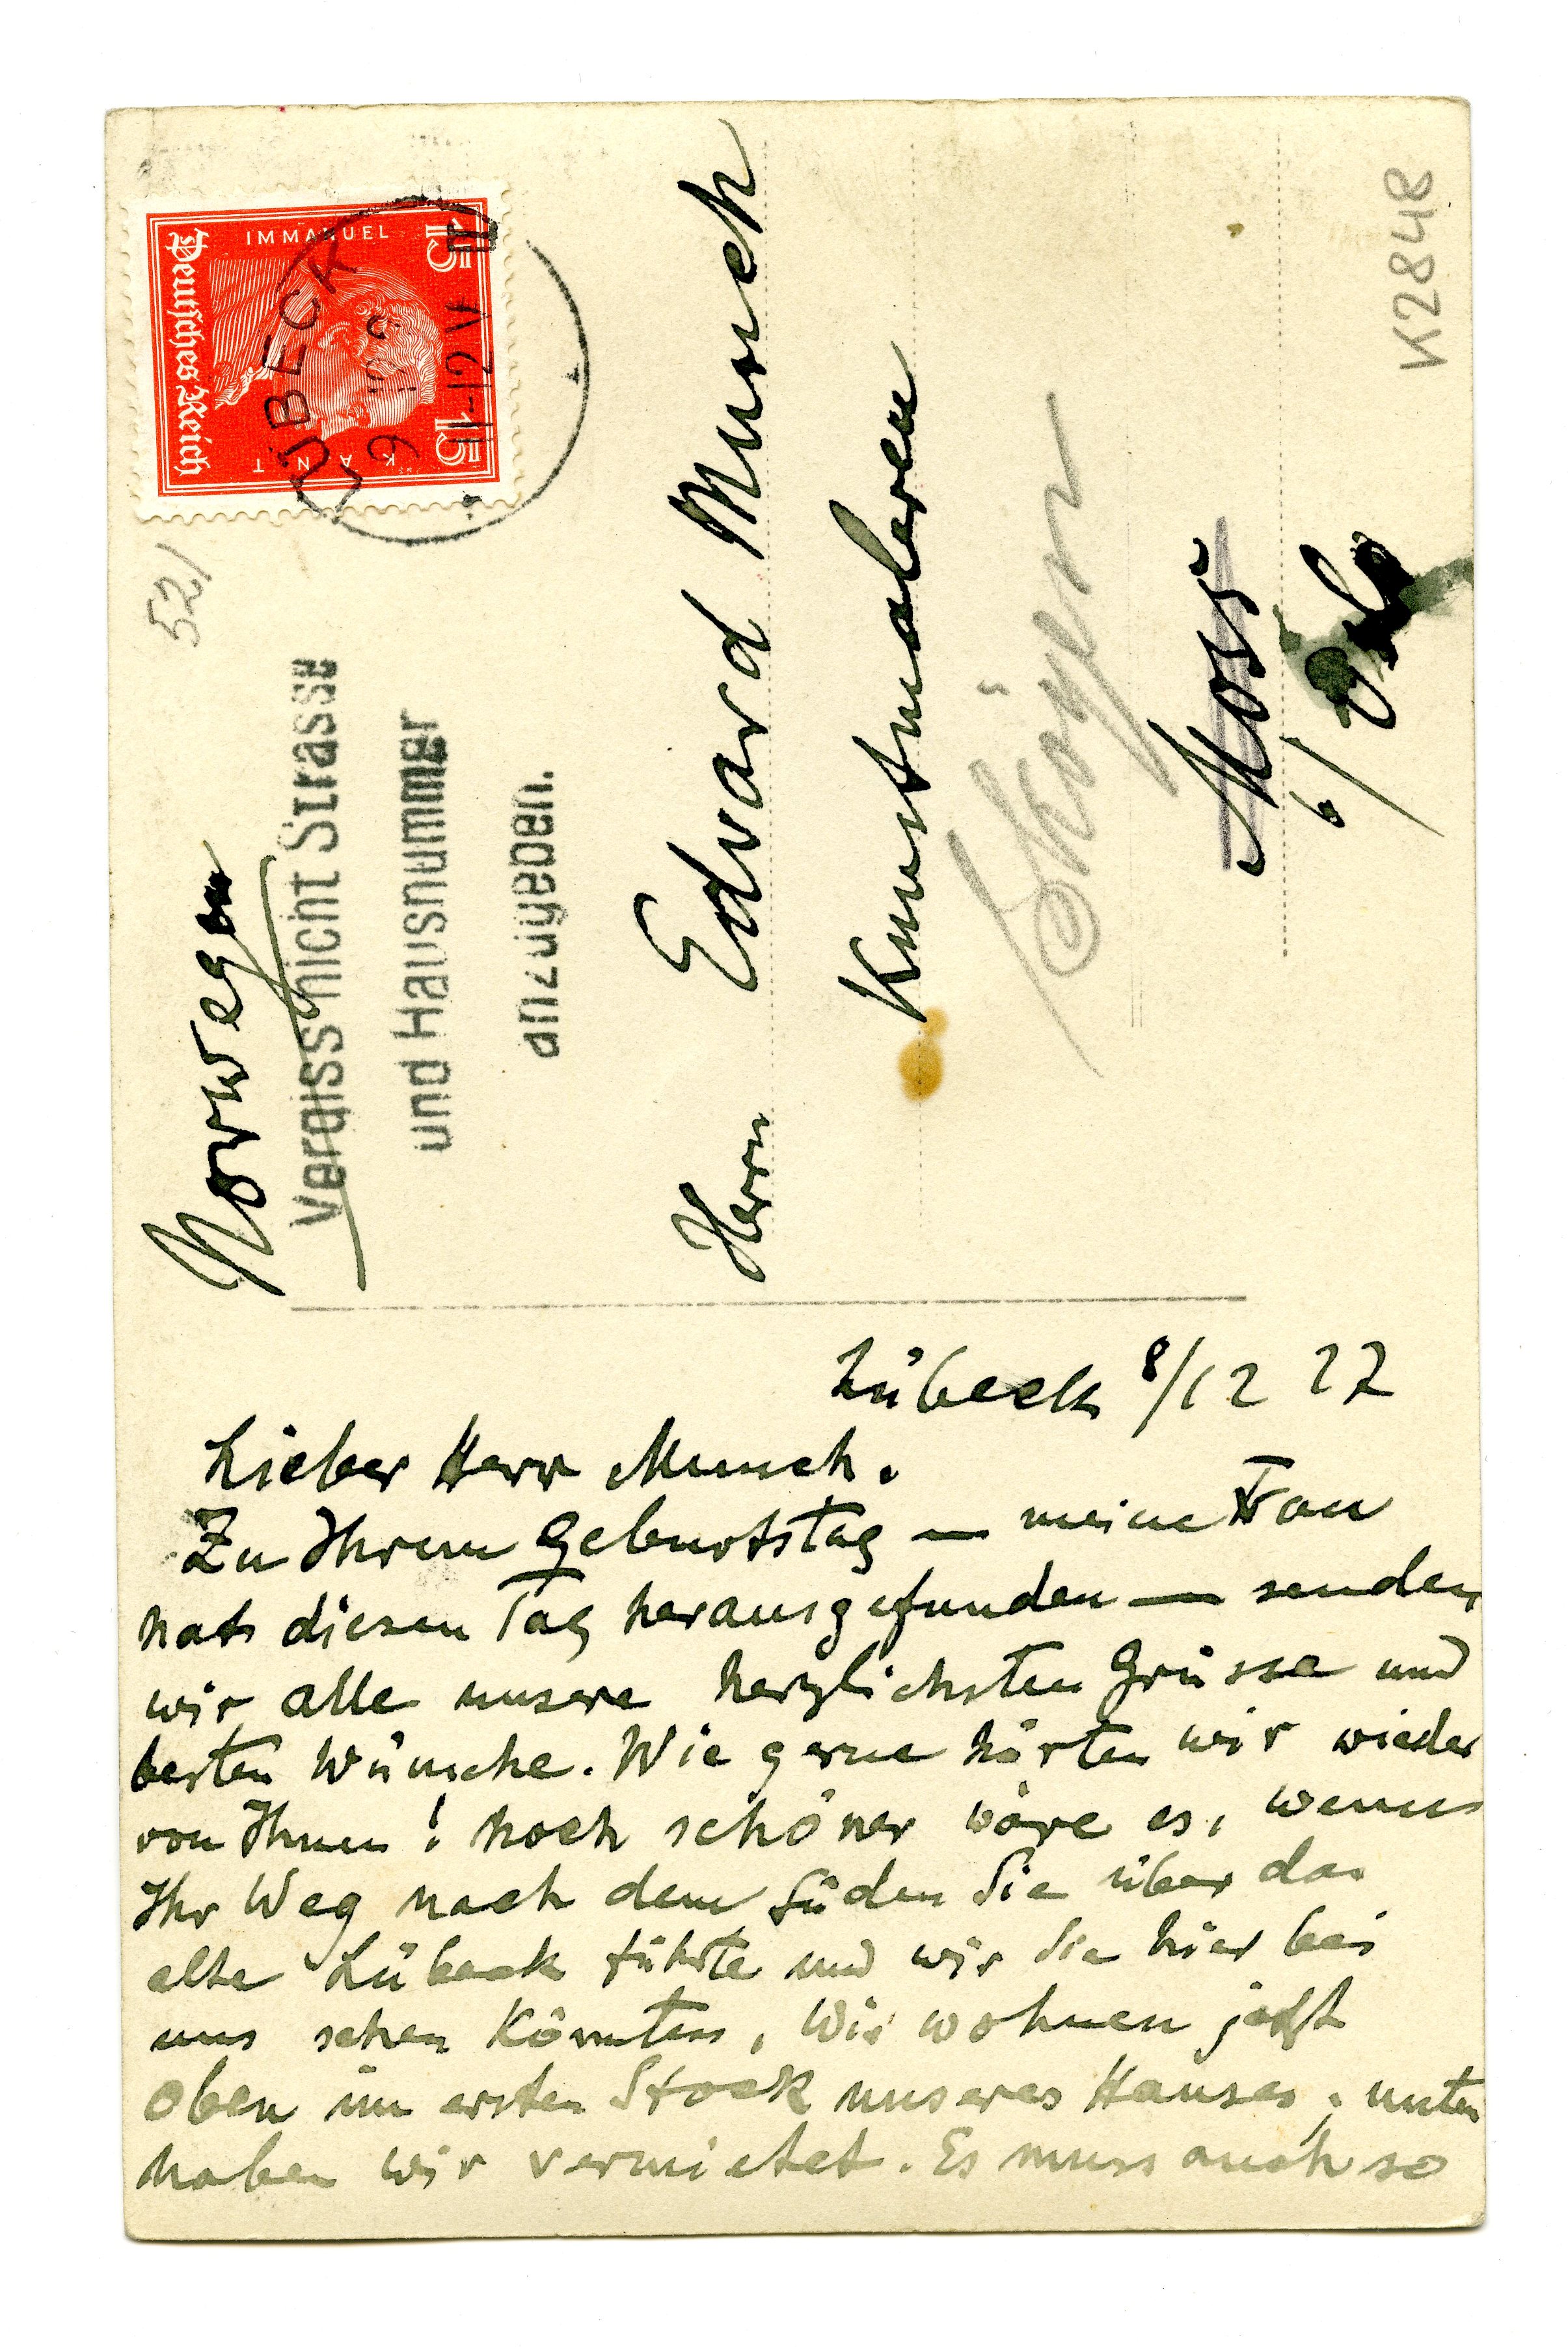 Lübeck 8/12 27
Lieber Herr Munch.
Zu Ihrem Geburtstag — meine Frau
hat diesen Tag herausgefunden — senden
wir alle unsere herzlichsten Grüsse und
besten Wünsche. Wie gerne hörten wir wieder
von Ihnen! Noch schöner wäre es, wenn
Ihr Weg nach dem Süden Sie über das
alte Lübeck führte und wir Sie hier bei
uns sehen könnten, Wir wohnen jetzt
oben im ersten Stock unseres Hauses; unten
haben wir vermietet. Es muss auch so
Norwegen
Vergiss nicht Strasse
und Hausnummer
anzugeben.
Herrn Edvard Munch
Kunstmaleren
Sköyen
Moss
b/ Oslo
521
K2848
IMMANUEL KANT
15 15
Deutsches Reich
LÜBECK
9.12
11-12 V